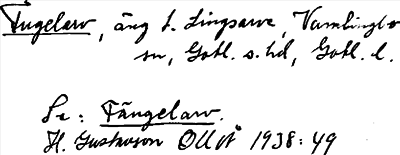 Fugelarv, äng t. Lingsarve, Vamlingbo
sn, Gotl. s. hd, Gotl. l.
Se: Fängelarv.
H. Gustavson OLUÅ 1938:49